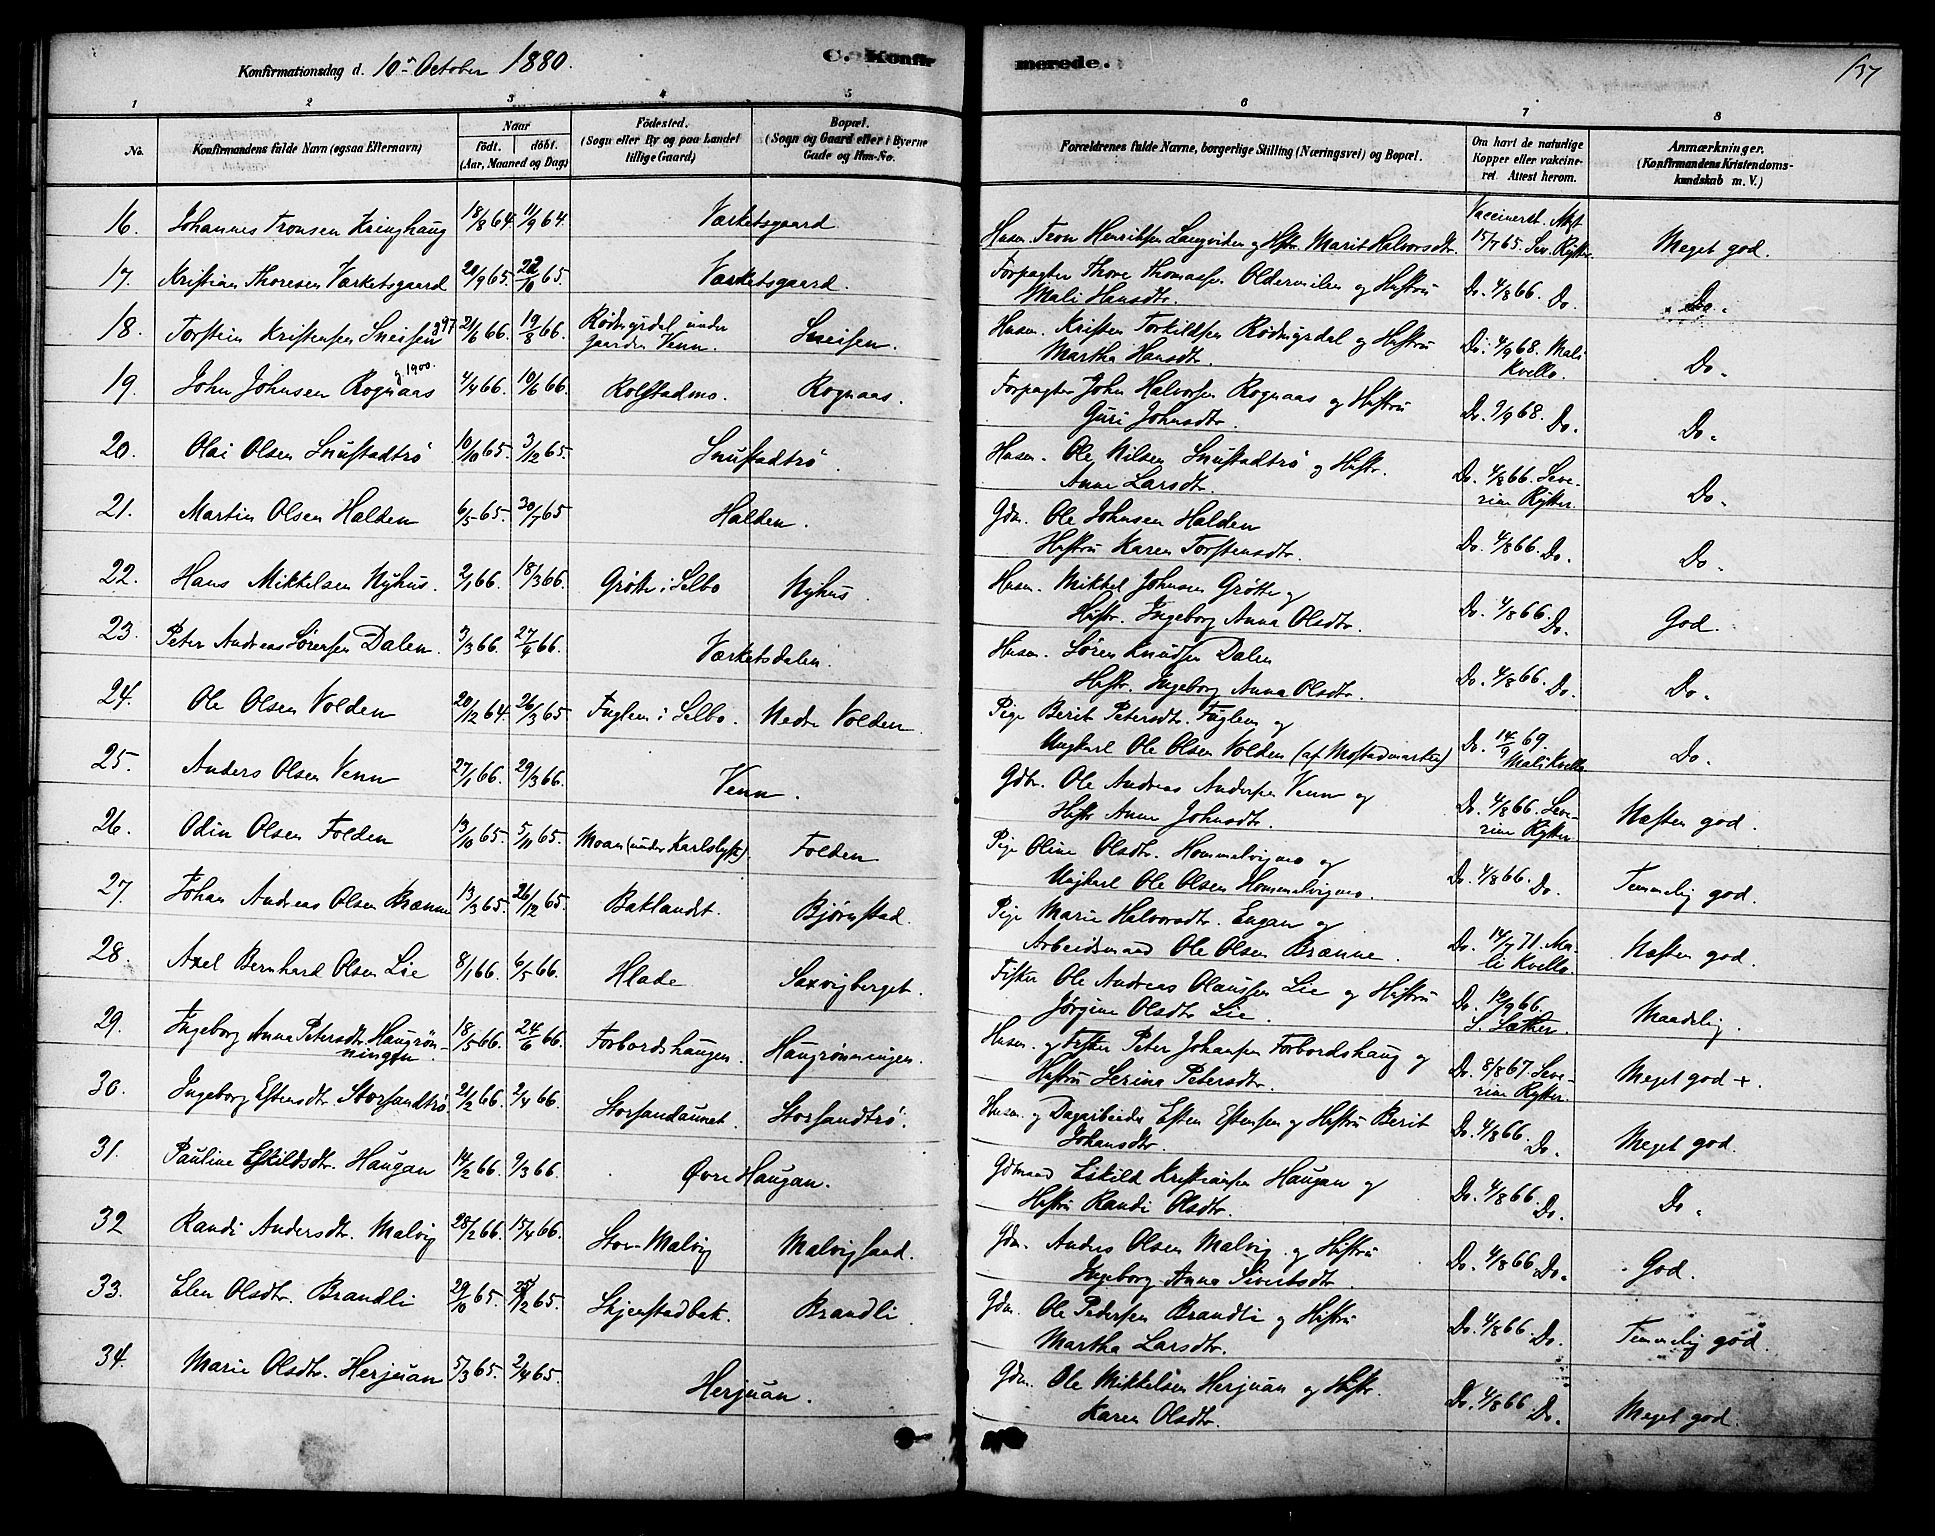 Konfirmationsdag d. 10de October 1880. C. Konfirmerede. 137
1 2 3 4 5 6 7 8
No. Konfirmandens fulde Navn (ogsaa Efternavn) Naar födt. döbt. (Aar, Maaned og Dag) Födested. (Sogn eller By og paa Landet tillige Gaard) Bopæl. (Sogn og Gaard eller i Byerne Gade og Hus-No. Forældrenes fulde Navne, borgerlige Stilling (Næringsvei) og Bopæl. Om havt de naturlige Kopper eller vakcineret. Attest herom. Anmærkninger. (Konfirmandens Kristendomskundskab m. V.)
16. Johannes Tronsen Kringhaug 18/8 64. 11/9 64. Værketsgaard Husm. Tron Henriksen Langviden og Hstr. Marit Halvorsdtr. Vaccineret. Att. 15/7 65. Sev. Rytter. Meget god.
17. Kristian Thoresen Værketsgaard 20/9 65. 22/10 65. Værketsgaard. Forpagter Thore Thomassen Oldermelen og Hustru
Mali Hansdtr. Do. 4/8 66. Do. Do.
18. Torstein Kristensen Sneisen 21/6 66. 19/8 66. Rødmyrdal under
gaarden Venn. Sneisen. Husm. Kristen Torkildsen Rødmyrdal og Hustru
Martha Hansdtr. Do. 4/9 68. Mali
Kvello. Do.
19. John Johnsen Rognaas 4/4 66. 10/6 66. Rolfstadmo. Rognaas. Forpagter John Halvorsen Rognaas og Hustru
Guri Johnsdtr. Do. 9/9 68. Do. Do.
20. Olai Olsen Snustadtrø 10/10 65. 3/12 65. Snustadtrø. Husm. Ole Nilsen Snustadtrø og Hustr.
Anne Larsdtr. Do. 4/8 66. Seve-
rine Rytter. Do.
21. Martin Olsen Halden 6/5 65. 30/7 65 Halden. Gdm. Ole Johnsen Halden
Hustru Karen Torstensdtr. Do. 4/8 66. Do. Do.
22. Hans Mikkelsen Nyhus. 2/1 66. 18/3 66. Grøtte i Selbo Nyhus. Husm. Mikkel Johnsen Grøtte og
Hustr. Ingeborg Anna Olsdtr. Do. 4/8 66. Do. God.
23. Peter Andreas Sørensen Dalen. 3/3 66. 27/4 66. Værketsdalen. Husm. Søren Knudsen Dalen
Hustr. Ingeborg Anna Olsdtr. Do. 4/8 66. Do. Do.
24. Ole Olsen Volden 20/12 64. 26/3 65. Fuglem i Selbo. Nedre Volden. Pige Berit Petersdtr. Fuglem og
Ungkarl Ole Olsen Volden (af Mostadmarken) Do. 14/9 69.
Mali Kvello Do.
25. Anders Olsen Venn 27/1 66. 29/3 66. Venn. Gdbr. Ole Andreas Andersen Venn og
Hustr Anne Johnsdtr. Do. 4/8 66. Seve-
rine Rytter. Næsten god.
26. Odin Olsen Folden 13/10 65. 5/11 65. Moan (under Karlslyst). Folden Pige Oline Olsdtr. Hommelvigmo og
Ungkarl Ole Olsen Hommelvigmo. Do. 4/8 66. Do. Temmelig god.
27. Johan Andreas Olsen Brænne 13/3 65. 26/12 65. Baklandet. Bjørnstad. Pige Marie Halvorsdtr. Engan og
Arbeidsmand Ole Olsen Brænne. Do. 14/7 71. Ma-
li Kvello. Næsten god.
28. Axel Bernhard Olsen Lie 8/1 66. 6/5 66. Hlade Saxvigberget. Fisker Ole Andreas Olaussen Lie og Hustru
Jørgine Olsdtr Lie. Do. 12/9 66.
S. Sæther. Maadelig.
29. Ingeborg Anna Petersdtr. Haugrøn-
ningen. 18/5 66. 24/6 66. Forbordshaugen. Haugrønningen. Husm. og Fisker Peter Johansen Forbordshaug og
Hustru Serina Petersdtr. Do. 8/8 67. Seve-
rine Rytter. Meget god +.
30. Ingeborg Estensdtr. Storsandtrø 21/2 66. 2/4 66. Storsandaunet. Storsandtrø. Husm. og Dagarbeider Esten Estensen og Hustru Berit
Johansdtr. Do. 4/8 66. Do. Meget god.
31. Pauline Eskildsdtr. Haugan 14/2 66. 9/3 66. Øvre Haugan. Gdmand Eskild Kristiansen Haugan og
Hustru Randi Olsdtr. Do. 4/8 66. Do. Do.
32 Randi Andersdtr. Malvig 28/2 66. 15/4 66. Stor-Malvig Malvigsand. Gdm. Anders Olsen Malvig og Hustru
Ingeborg Anna Sivertsdtr. Do. 4/8 66. Do. God.
33. Elen Olsdtr. Brandli 29/10 65. 25/12 65. Skjenstadbak. Brandli. Gdm. Ole Pedersen Brandli og Hustru
Martha Larsdtr. Do. 4/8 66. Do. Temmelig god.
34. Marie Olsdtr. Herjuan 5/3 65. 2/4 65. Herjuan. Gdm. Ole Mikkelsen Herjuan og Hustr.
Karen Olsdtr. Do. 4/8 66. Do. Meget god.